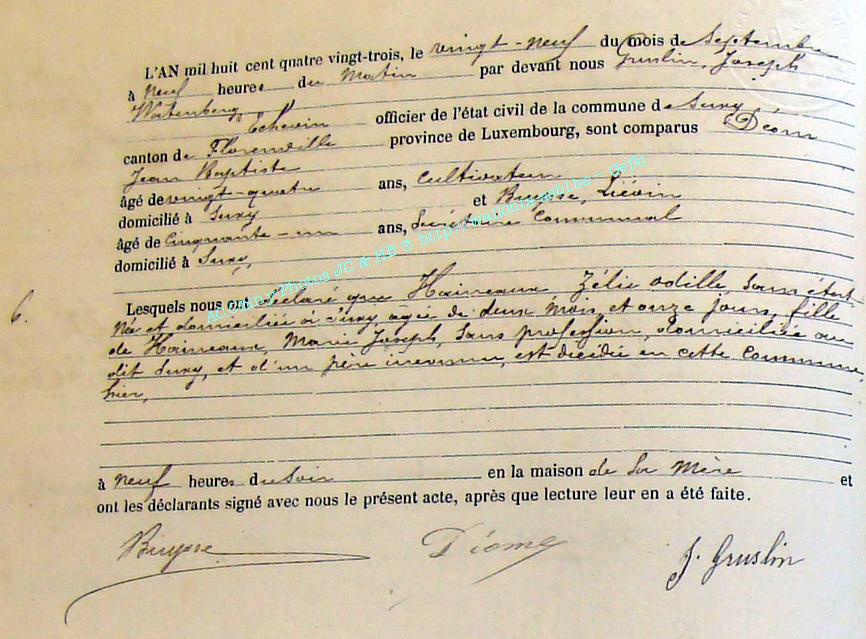 L'AN mil huit cent quatre vingt-trois, le vingt-neuf du mois de Septembre
à neuf heures du Matin par devant nous Gruslin, Joseph
Echevin officier de l'état civil de la commune de Suxy
canton de Florenville province de Luxembourg, sont comparus Déom
Jean Baptiste
âgé de vingt-quatre ans, cultivateur
domicilié à Suxy et Buysse, Liévin
âgé de Cinquante-un ans, Secrétaire Communal
domicilié à Suxy,
6.
Lesquels nous ont déclaré que Haineaux Zélie Odille, sans état
née et domiciliée à Suxy, agée de deux mois et onze jours, fille
de Haineaux, Marie Joseph, sans profession, domiciliée au
dit Suxy, et d'un père inconnu, est décédée en cette Commune,
hier,
à neuf heures du Soir en la maison de sa mère et
ont les déclarants signé avec nous le présent acte, après que lecture leur en a été faite.
Buysse Déom J. Gruslin